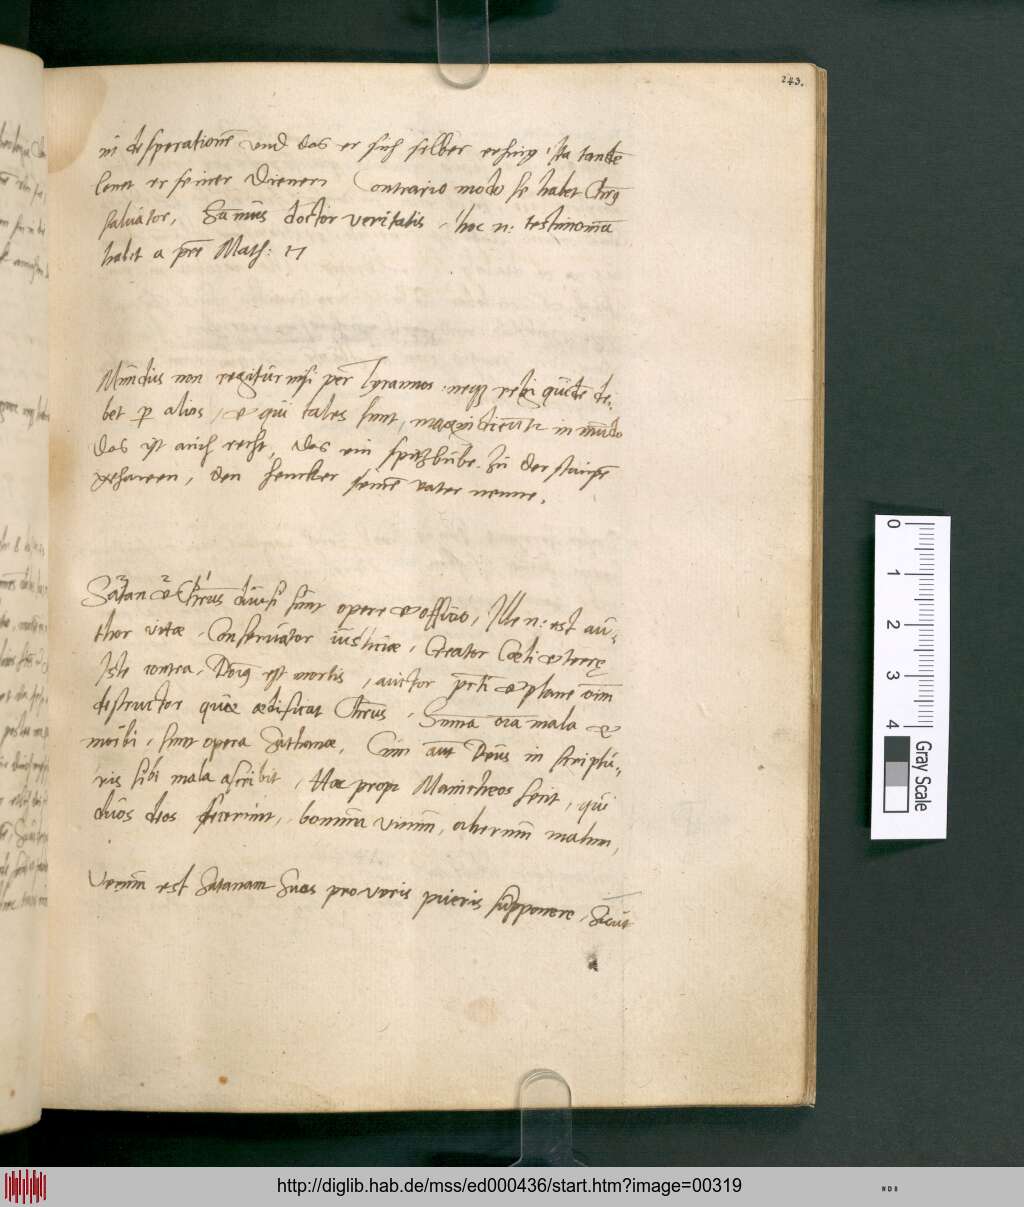 243.
in desperationē und das er sich selber erhing, Ita tandē
lonet er seinen Dienern Contrario modo se habet Chrūs
saluator, Sūmus doctor veritatis, hoc n: testimoniū
habet a pr̄e Math: 17
Mundus non regitur nisi per Tyrannos, neqȝ regi quidē de=
bet p alios, & qui tales sunt, in mūdo
das ist auch recht, das ein spitzbube zu der staupē
gehawen, den hencker seinē vater nenne.
Satan & Chr̄us diūsi sunt opere & officio, Ille n: est au=
thor vitæ, Conseruator iustitiæ, Creator Cœli & terrę
Iste contra, est mortis, auctor pcti & plane oīm
destructor quæ ædificat Chr̄us, Suma oīa mala &
morbi, sunt opera Sathanæ, Cum aut Deus in scriptu=
ris sibi mala ascribit, Hoc propt Manicheos fecit, qui
duos deos fecerunt, bonum vnum, alterum malum,
Verum est Satanam suos pro veris pueris supponere, Sicut
0
1
2
3
4
Gray Scale
http://diglib.hab.de/mss/ed000436/start.htm?image=00319